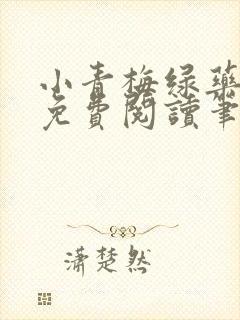 小青梅绿药
免費閱讀筆
潇楚然